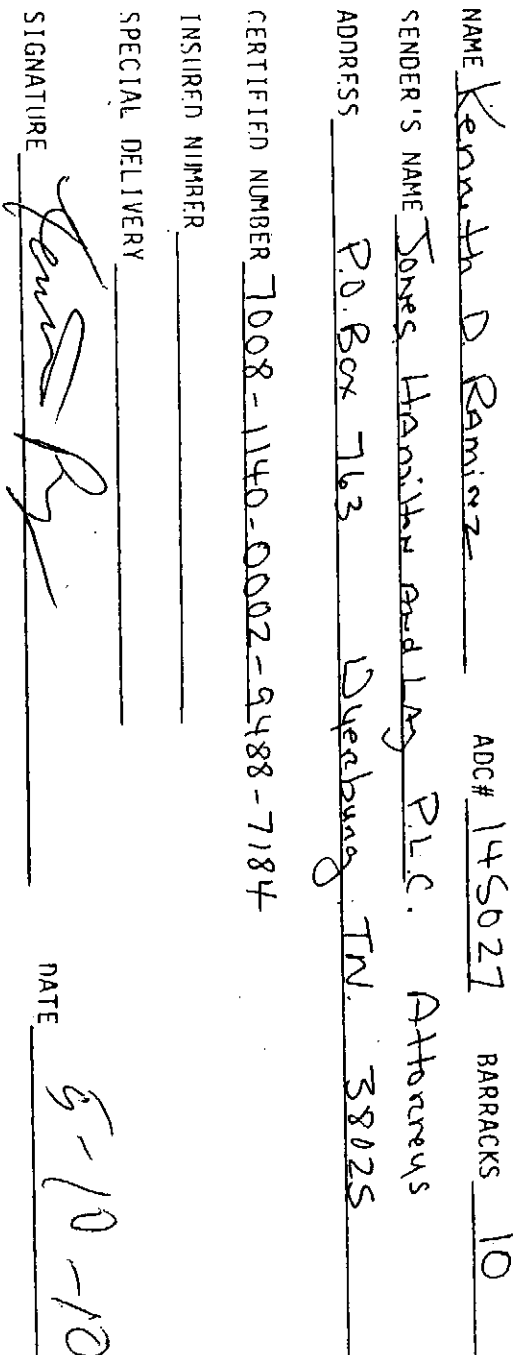 NAME Kennith D. Ramirez ADC# 145027 BARRACKS 10
SENDER'S NAME Jones Hamilton and Lay P.L.C. Attorneys
ADDRESS P.O. Box 763 Dyersburg TN. 38025
CERTIFIED NUMBER 7008-1140-0002-9488-7184
INSURED NUMBER
SPECIAL DELIVERY
SIGNATURE DATE 5-10-10